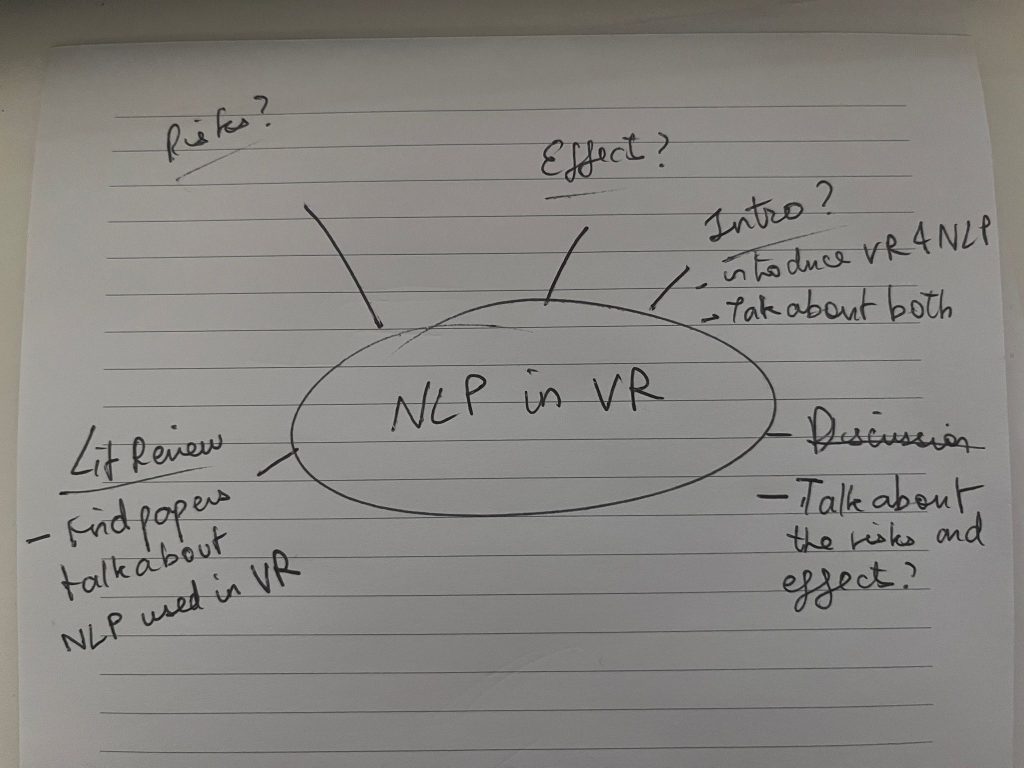 Risks?
Effect?
Intro?
- introduce VR & NLP
- Talk about both
NLP in VR
Discussion
- Talk about
the risks and
effect?
Lit Review
- Find papers
talk about
NLP used in VR